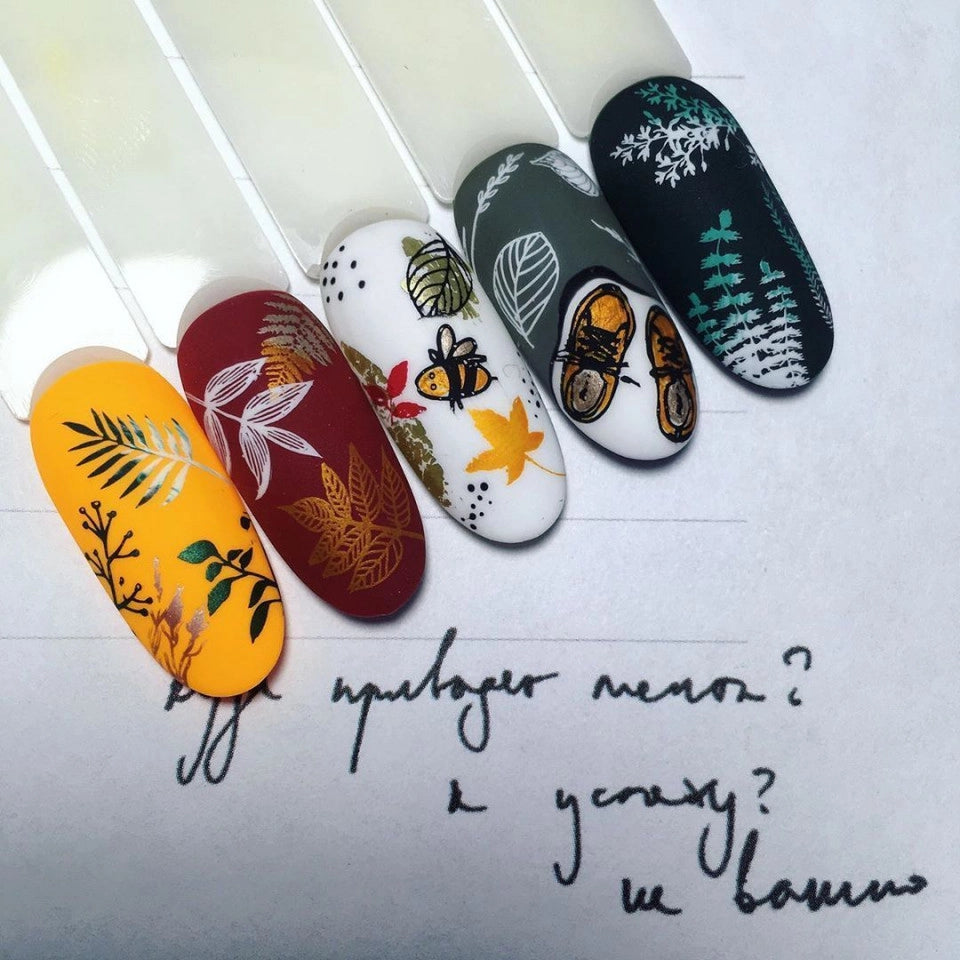 куда приводят мечты?
к успеху?
не важно